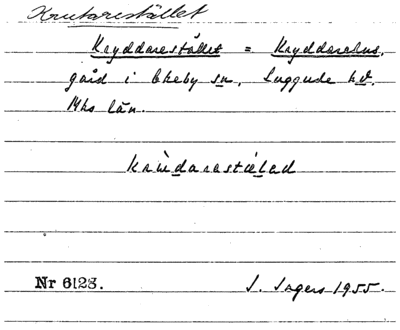 Krutarestället
Kryddarestället = Kryddarehus,
gård i Ekeby sn, Luggude hd.
Mhs län.
krỳdarestɛ̀lad
Nr 6128. S. Ingers 1955.